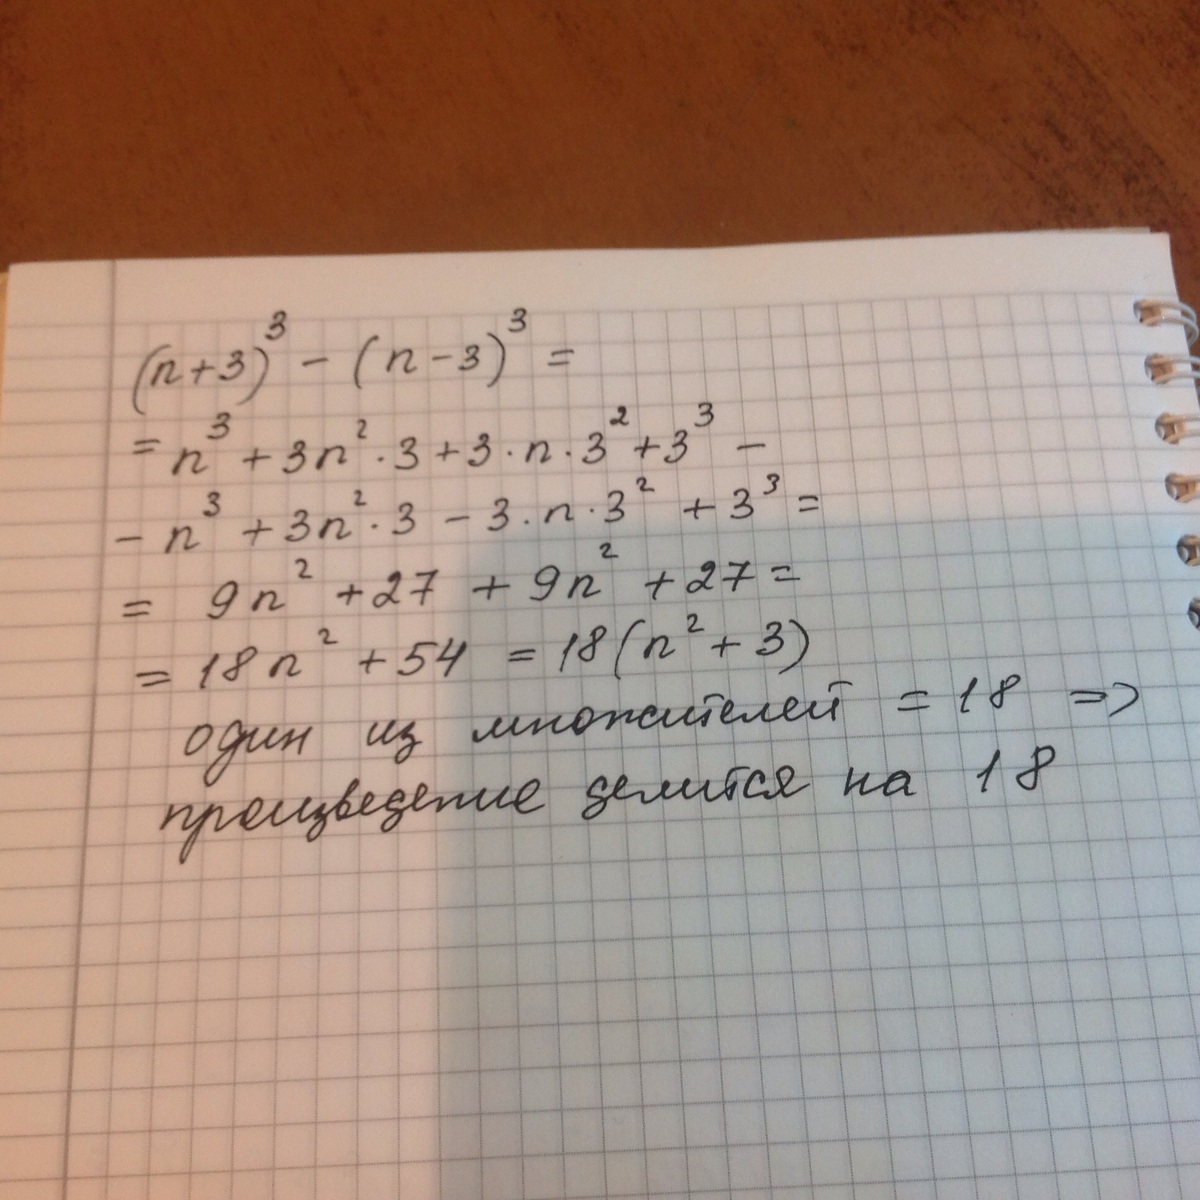 (n+3)³ - (n-3)³ =
= n³ + 3n²·3 + 3·n·3² + 3³ -
- n³ + 3n²·3 - 3·n·3² + 3³ =
= 9n² + 27 + 9n² + 27 =
= 18n² + 54 = 18(n² + 3)
один из множителей = 18 =>
произведение делится на 18